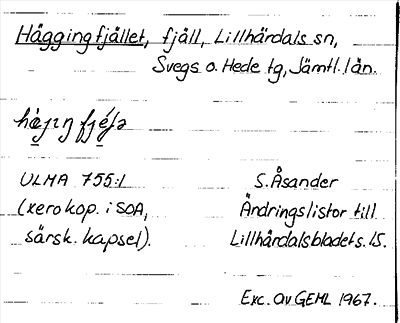 Håggingfjället, fjäll, Lillhärdals sn,
Svegs o. Hede tg, Jämtl. län.
ULMA 755:1
(xerokop. i SOA,
särsk. kapsel).
S. Åsander
Ändringslistor till
Lillhärdalsbladet s. 15.
Exc. av GEHL 1967.